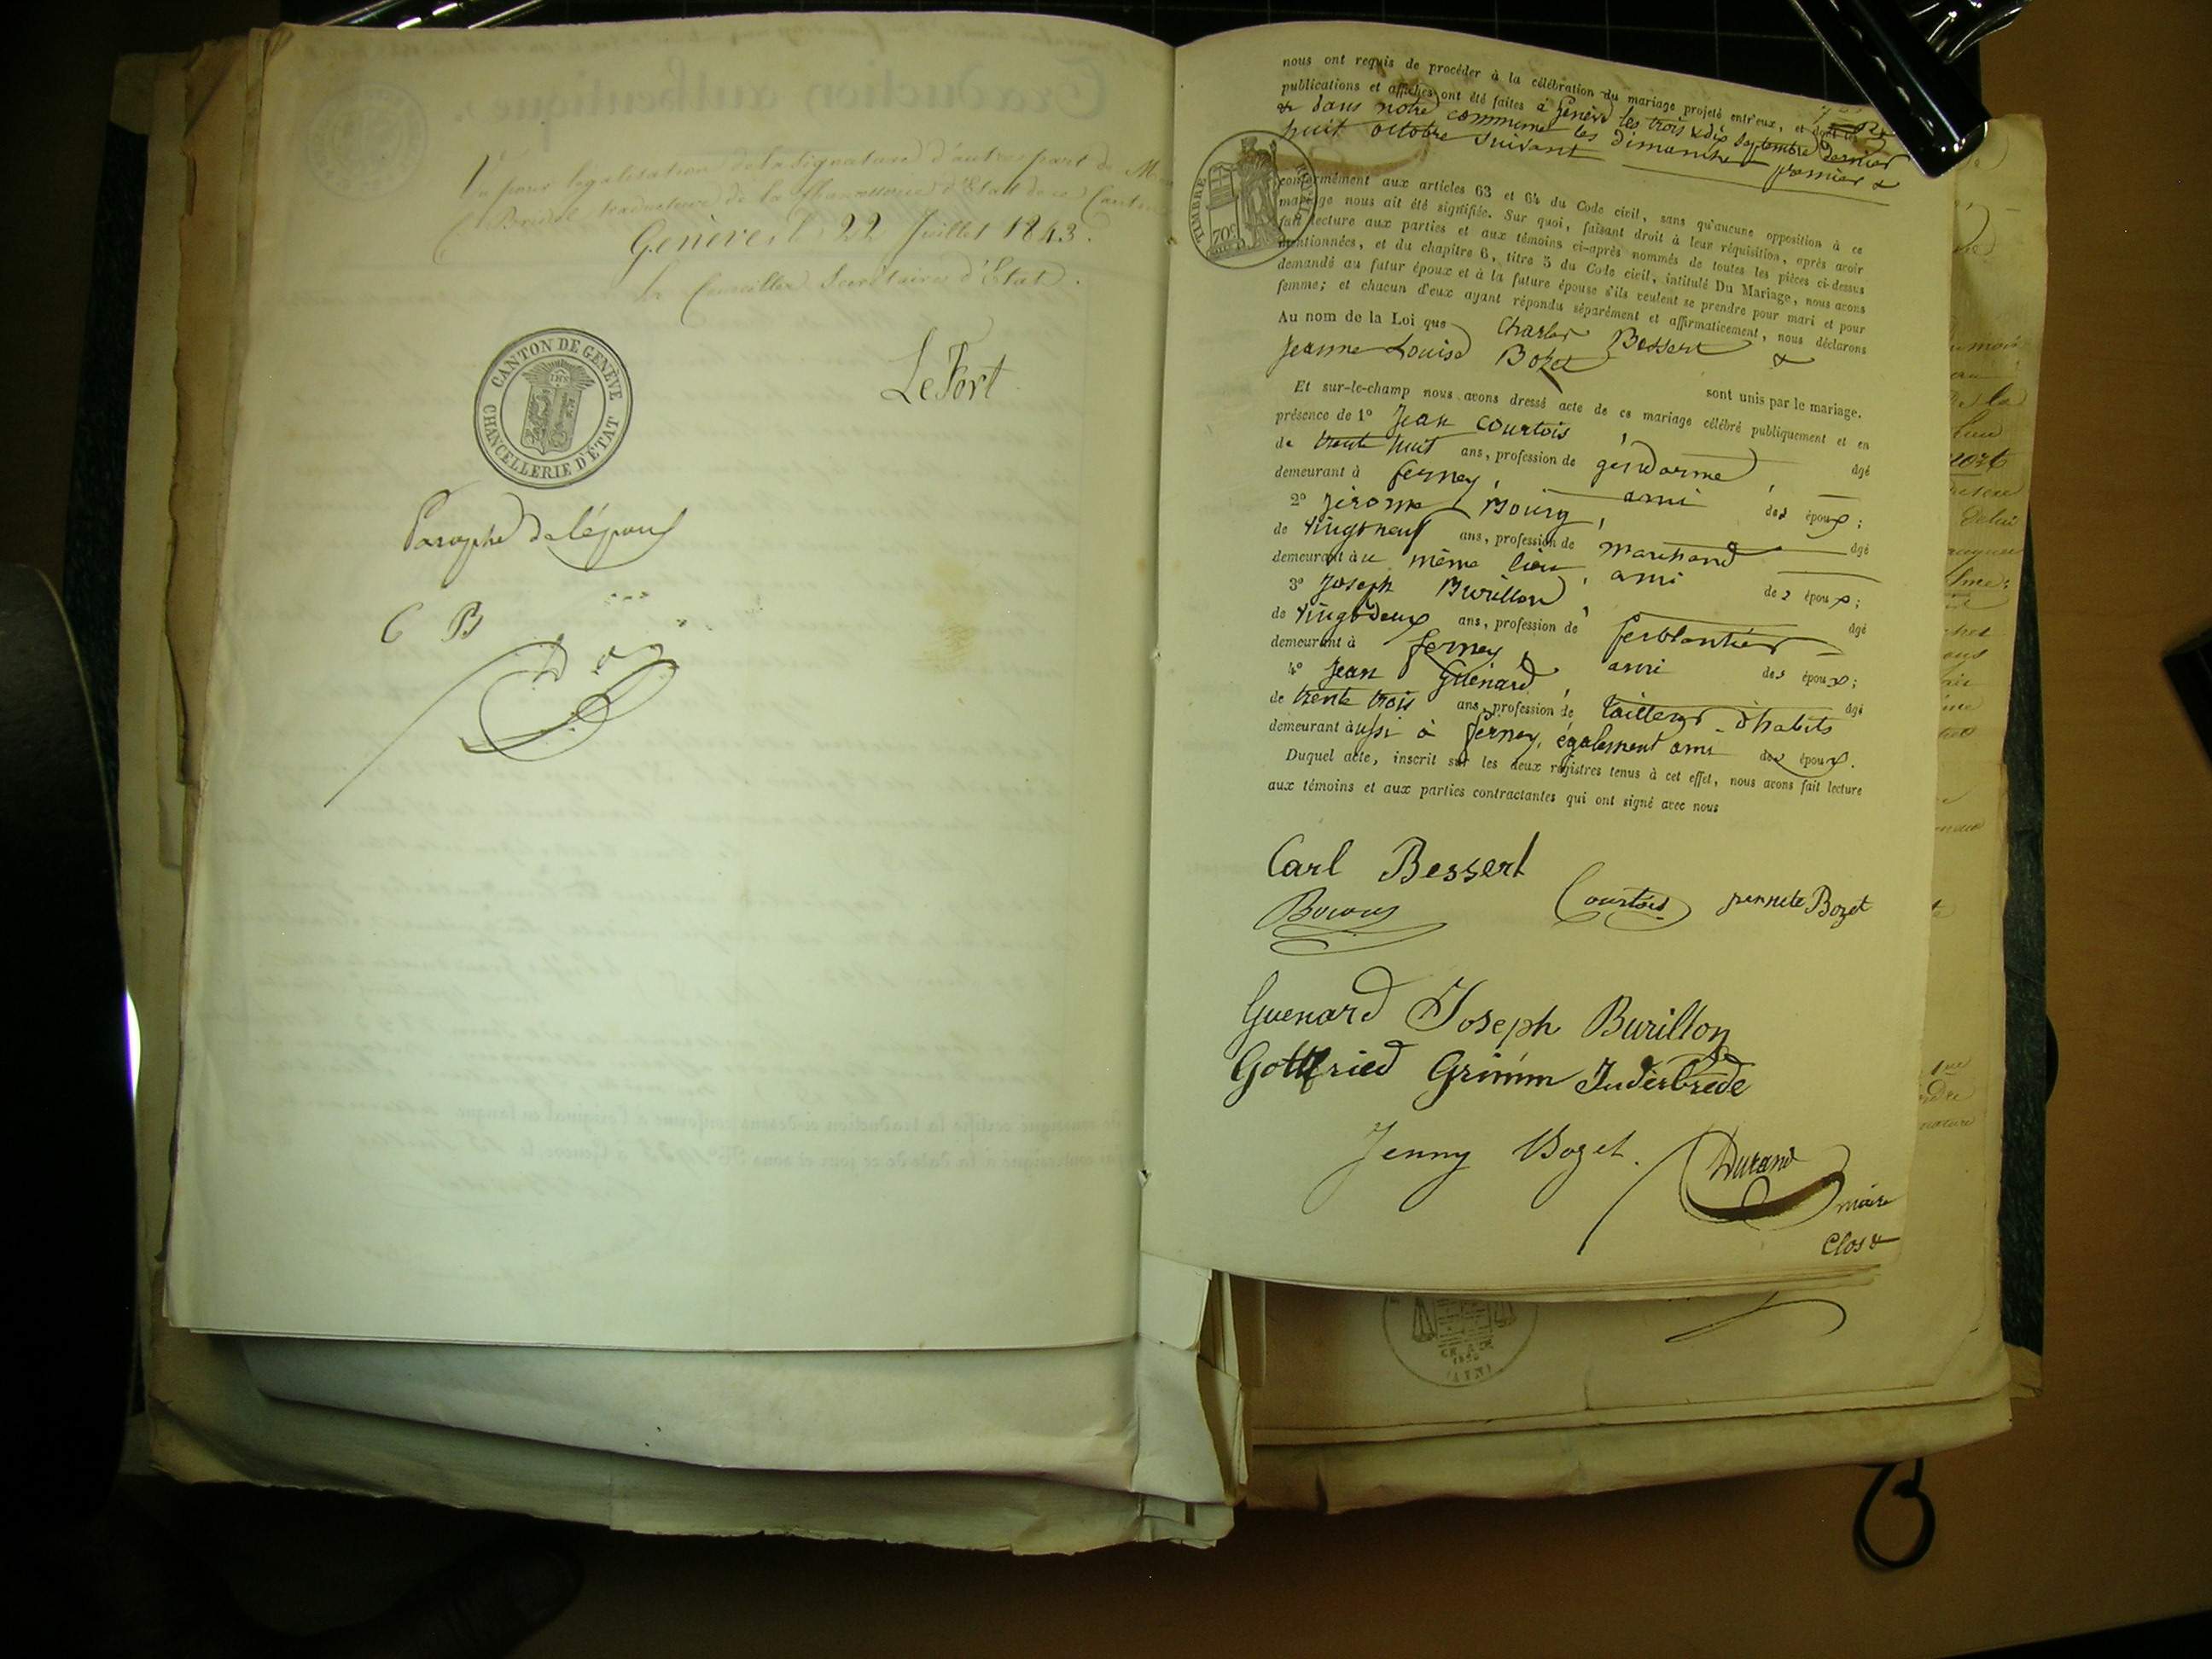 Vu pour légalisation de la signature d'autre part de M.
Bridel traducteur de la Chancellerie d'Etat de ce Canton
Genève, le 22 Juillet 1843.
Le Conseiller Secrétaire d'Etat.
LeFort
CANTON DE GENÈVE
CHANCELLERIE D'ÉTAT
Paraphe de l'époux
C B
nous ont requis de procéder à la célébration du mariage projeté entr'eux, et dont les
publications et affiches ont été faites à Genève les trois & dix septembre dernier
& dans notre commune les dimanches premier &
huit octobre suivant
TIMBRE ROYAL
70c
conformément aux articles 63 et 64 du Code civil, sans qu'aucune opposition à ce
mariage nous ait été signifiée. Sur quoi, faisant droit à leur réquisition, après avoir
fait lecture aux parties et aux témoins ci-après nommés de toutes les pièces ci-dessus
mentionnées, et du chapitre 6, titre 5 du Code civil, intitulé Du Mariage, nous avons
demandé au futur époux et à la future épouse s'ils veulent se prendre pour mari et pour
femme; et chacun d'eux ayant répondu séparément et affirmativement, nous déclarons
Au nom de la Loi que Charles Bessert &
Jeanne Louise Bozet
sont unis par le mariage.
Et sur-le-champ nous avons dressé acte de ce mariage célébré publiquement et en
présence de 1º Jean Courtois, âgé
de trente huit ans, profession de gendarme,
demeurant à ferney, ami des époux;
2º Jérome Bouvy, âgé
de vingt neuf ans, profession de marchand
demeurant au même lieu, ami des époux;
3º Joseph Burillon, âgé
de vingt deux ans, profession de ferblantier
demeurant à ferney, ami des époux;
4º Jean Guénard, âgé
de trente trois ans, profession de tailleur d'habits
demeurant aussi à ferney, également ami des époux.
Duquel acte, inscrit sur les deux registres tenus à cet effet, nous avons fait lecture
aux témoins et aux parties contractantes qui ont signé avec nous
Carl Bessert
Courtois jennete Bozet
Guenard Joseph Burillon
Gottfried Grimm Juderbrede
Jenny Bozet. Durand
maire
Clos &